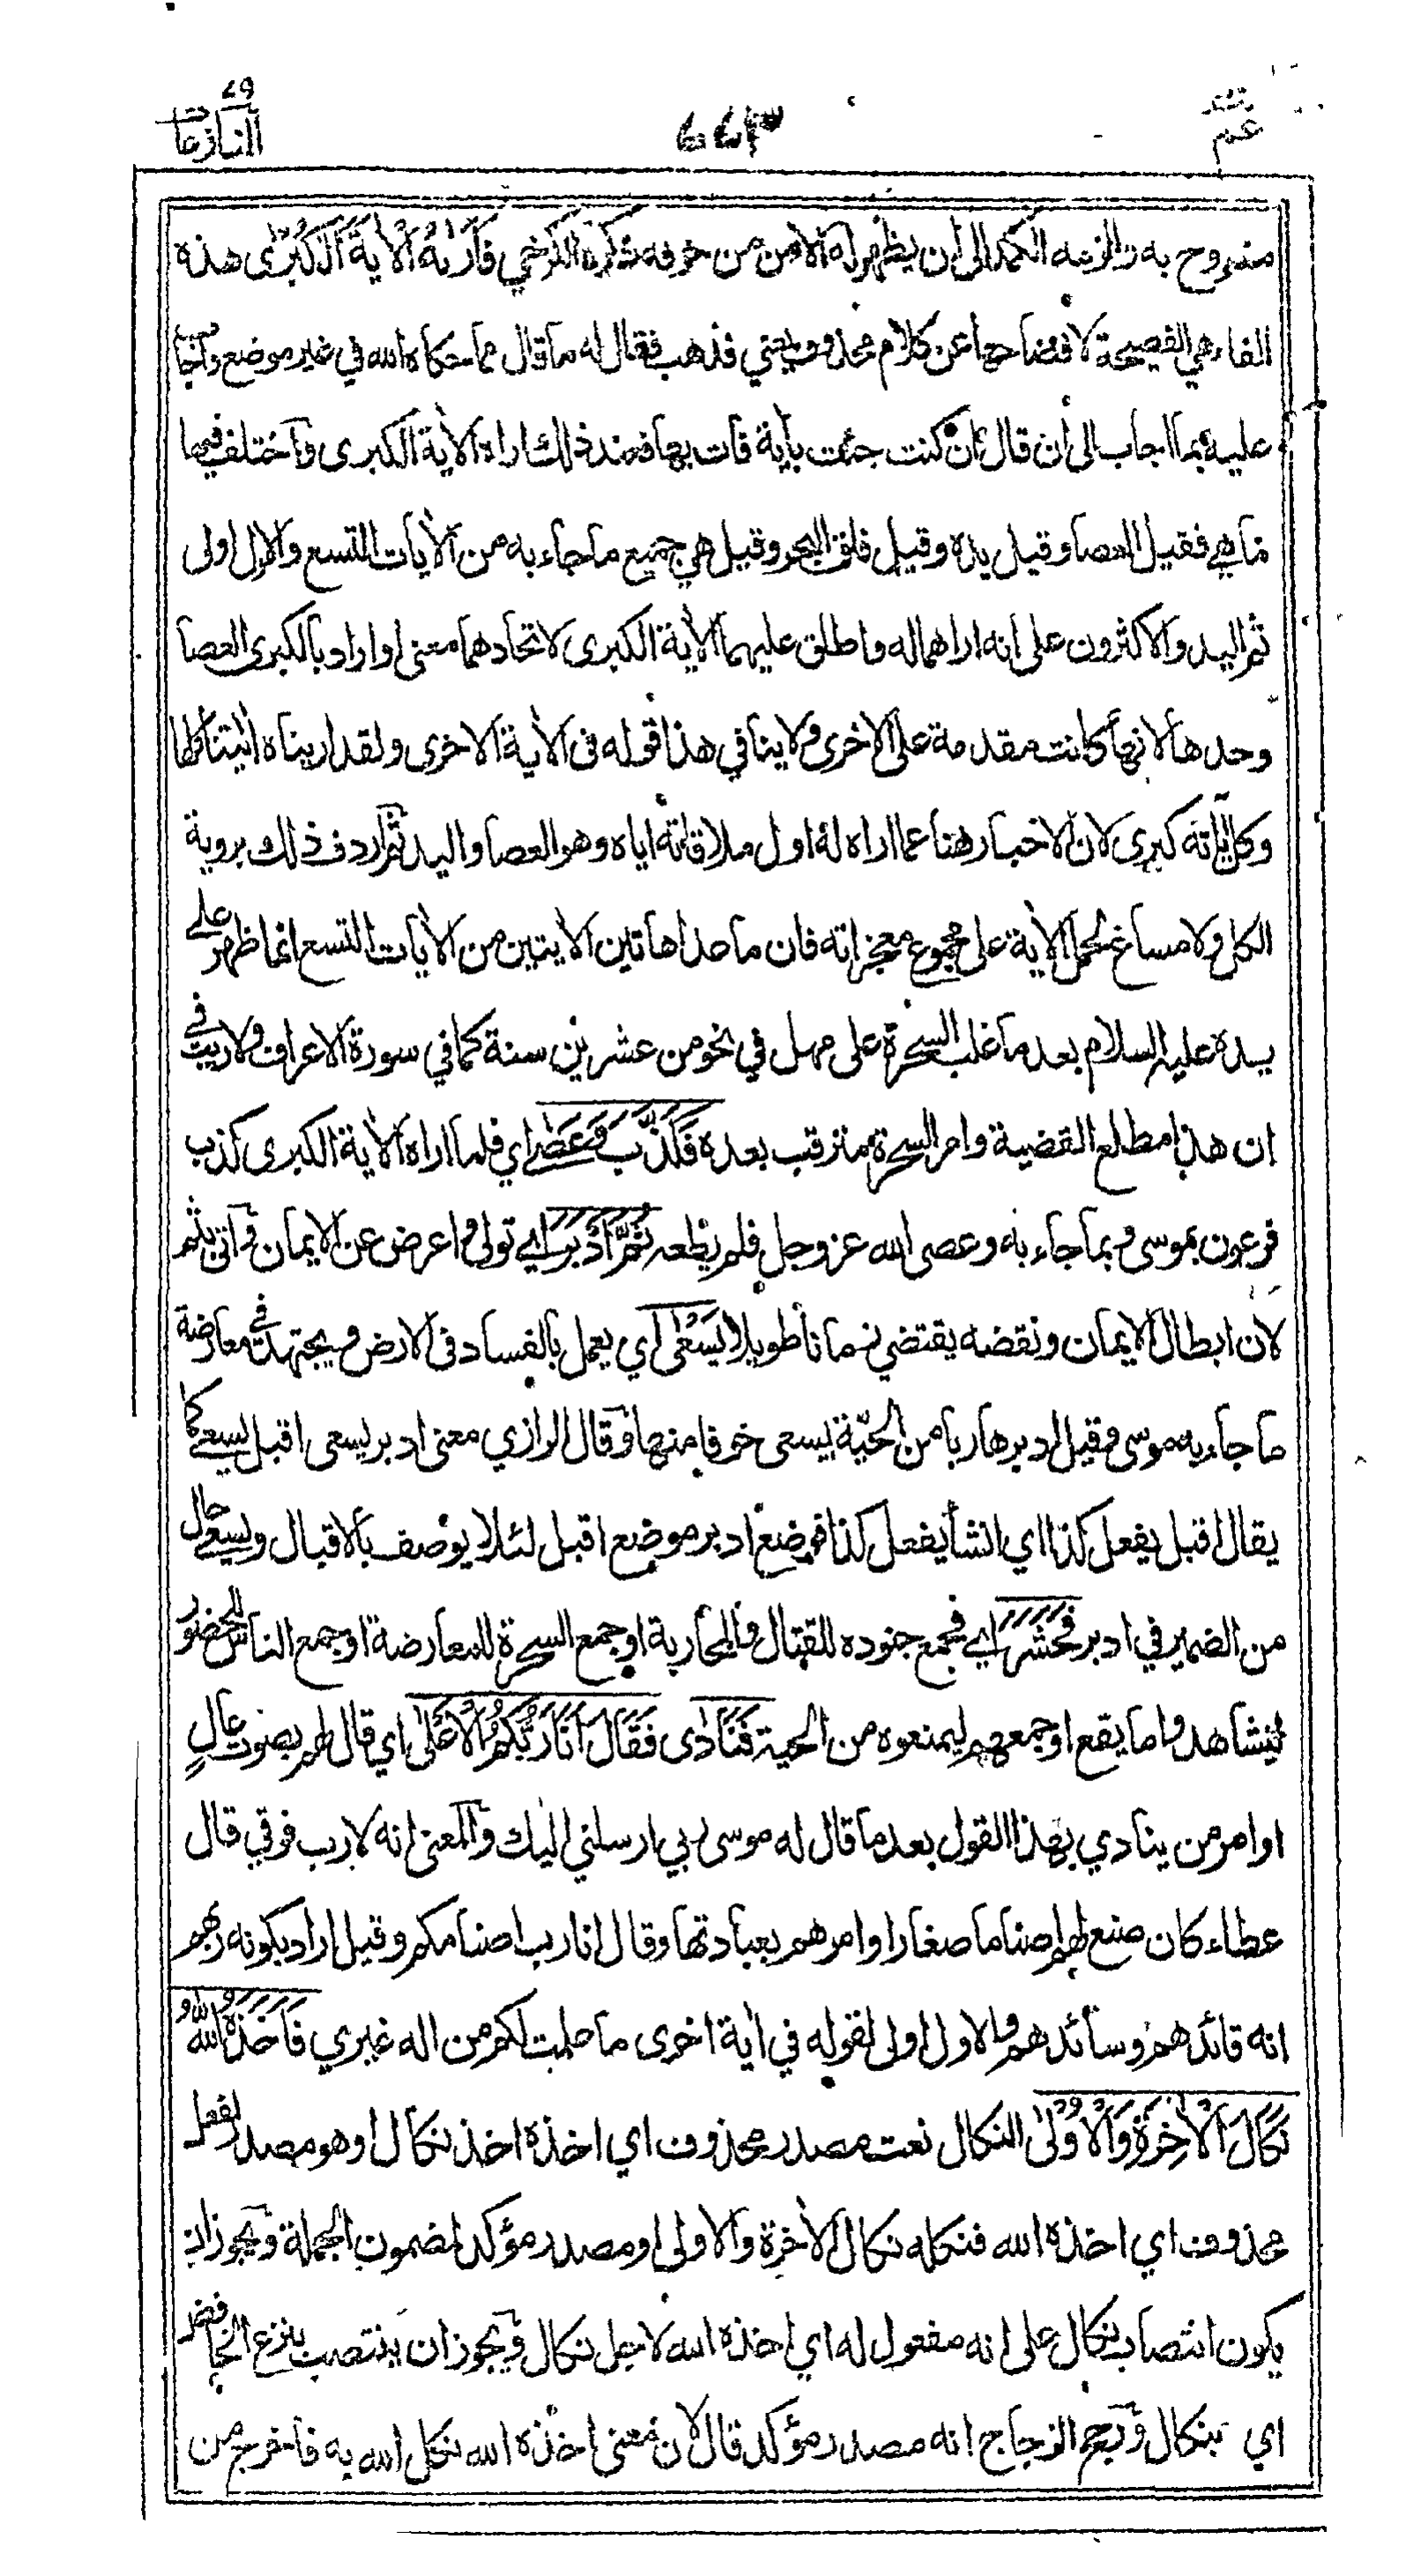 عم ٣٠
٢٢٣
النازعات ٧٩
به والزمه الكمد الى ان يظهر له الامن من خوفه ذكره الكرخي فَاَرٰىهُ الْاٰيَةَ الْكُبْرٰى هذه
الفاء هي الفصيحة لافصاحها عن كلام محذوف يعني فذهب فقال له ما قال مما حكاه الله في غير موضع واجاب
عليه بما اجاب الى ان قال ان كنت جئت بأية فات بها فعند ذلك اراه الاٰية الكبرى واختلف فيها
ما هي فقيل العصا وقيل يده وقيل فلق البحر وقيل هي جميع ما جاء به من الاٰيات التسع والاول اولى
ثم اليد والاكثرون على انه اراهما له واطلق عليهما الاٰية الكبرى لاتحادهما معنى او اراد بالكبرى العصا
وحدها لانها كانت مقدمة على الاخرى ولا ينافي هذا قوله فى الاٰية الاخرى ولقد اريناه اٰيٰتنا كلها
وكل اٰياته كبرى لان الاخبار هنا عما اراه له اول ملاقاته اياه وهو العصا واليد ثم اردف ذلك بروية
الكل ولا مساغ لحمل الاٰية على مجموع معجزاته فان ما عدا هاتين الاٰيتين من الاٰيات التسع انما ظهر على
يده عليه السلام بعد ما غلب السحرة على مهل في نحو من عشرين سنة كما في سورة الاعراف ولا ريب في
ان هذا مطلع القضية وامر السحرة مترقب بعده فَكَذَّبَ وَعَصٰى اي فلما اراه الاٰية الكبرى كذب
فرعون بموسى وبما جاء به وعصى الله عز وجل فلم يطعه ثُمَّ اَدْبَرَ اي تولى واعرض عن الايمان واتى بثم
لان ابطال الايمان ونقضه يقتضي زمانا طويلا يَسْعٰى اي يعمل بالفساد فى الارض ويجتهد في معارضة
ما جاء به موسى وقيل ادبر هاربا من الحيّة يسعى خوفا منها وقال الرازي معنى ادبر يسعى اقبل يسعى كما
يقال اقبل يفعل كذا اي انشأ يفعل كذا فوضع ادبر موضع اقبل لئلا يوصف بالاقبال ويسعى حال
من الضمير في ادبر فَحَشَرَ اي فجمع جنوده للقتال والمحاربة او جمع السحرة للمعارضة او جمع الناس للحضور
ليشاهدوا ما يقع او جمعهم ليمنعوه من الحية فَنَادٰى فَقَالَ اَنَا رَبُّكُمُ الْاَعْلٰى اي قال لهم بصوت عالٍ
او امر من ينادي بهذا القول بعد ما قال له موسى ربي ارسلني اليك والمعنى انه لا رب فوقي قال
عطاء كان صنع لهم اصناما صغارا وامرهم بعبادتها وقال انا رب اصنامكم وقيل اراد بكونه ربهم
انه قائدهم وسائدهم والاول اولى لقوله في اٰية اخرى ما علمت لكم من اله غيري فَاَخَذَهُ اللّٰهُ
نَكَالَ الْاٰخِرَةِ وَالْاُوْلٰى النكال نعت مصدر محذوف اي اخذه اخذ نكال او هو مصدر لفعل
محذوف اي اخذه الله فنكله نكال الاٰخرة والاولى او مصدر مؤكد لمضمون الجملة ويجوز ان
يكون انتصاب نكال على انه مفعول له اي اخذه الله لاجل نكال ويجوز ان ينتصب بنزع الخافض
اي بنكال ورجح الزجاج انه مصدر مؤكد قال لان معنى اخذه الله نكل الله به فأخرج من